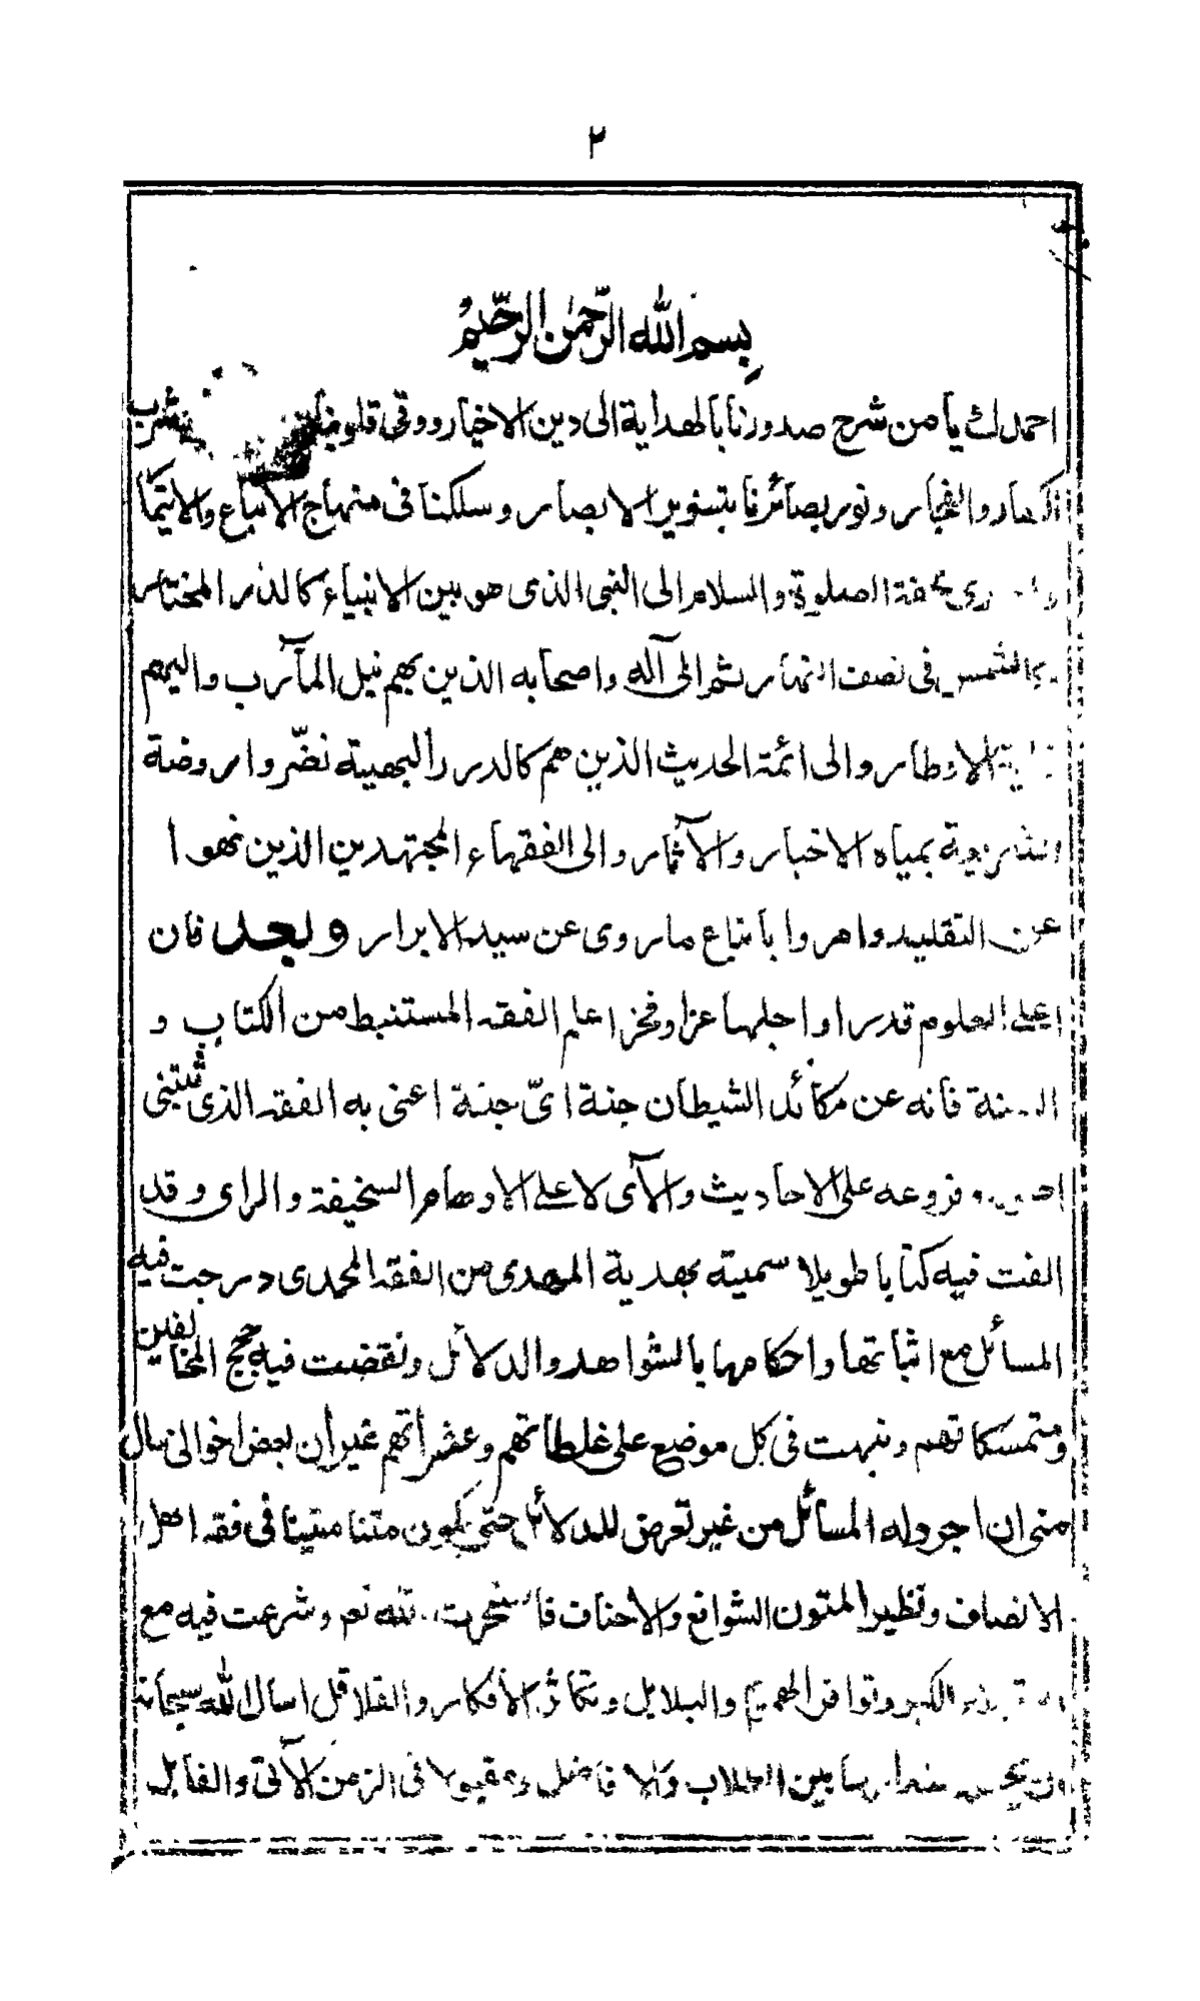 ٢
بسم الله الرحمن الرحيم
احمدك يا من شرح صدورنا بالهداية الى دين الاخيار ووقى قلوبنا شرب
والفجار ونور بصائرنا بتنوير الابصار وسلكنا فى منهاج الاتباع والايتما
الصلوة والسلام الى النبى الذى هو بين الانبياء كالدر المختار
كالشمس فى نصف النهار ثم الى آله واصحابه الذين بهم نيل المآرب واليهم
الاوطار والى ائمة الحديث الذين هم كالدرر البهيته نضّروا روضة
الشريعة بمياه الاخبار والآثار والى الفقهاء المجتهدين الذين نهوا
عن التقليد وامروا باتباع ما روى عن سيد الابرار وبعد فان
اعلى العلوم قدرا واجلها عزا وفخرا علم الفقه المستنبط من الكتاب و
السنة فانه عن مكائد الشيطان جنة اىّ جنة اعنى به الفقه الذى يبتنى
وفروعه على الاحاديث والآى لا على الاوهام السخيفة والراى وقد
الفت فيه كتابا طويلا سميته بهدية المهدى من الفقه المحمدى درجت فيه
المسائل مع اثباتها واحكامها بالشواهد والدلائل ونقضت فيه حجج المخالفين
ومتمسكاتهم ونبهت فى كل موضع على غلطاتهم وعثراتهم غير ان بعض اخوالى سال
منى ان اجرد له المسائل من غير تعرض للدلائل حتى يكون متنا متينا فى فقه اهل
الانصاف ونظير المتون الشوافع والاحناف فاستخرت الله نعم وشرعت فيه مع
الكبر وتوافر الهموم والبلابل وتكاثر الافكار والقلاقل اسال الله سبحانه
ان بين الطلاب والافاضل ومقبولا فى الزمن الآتى والقابل